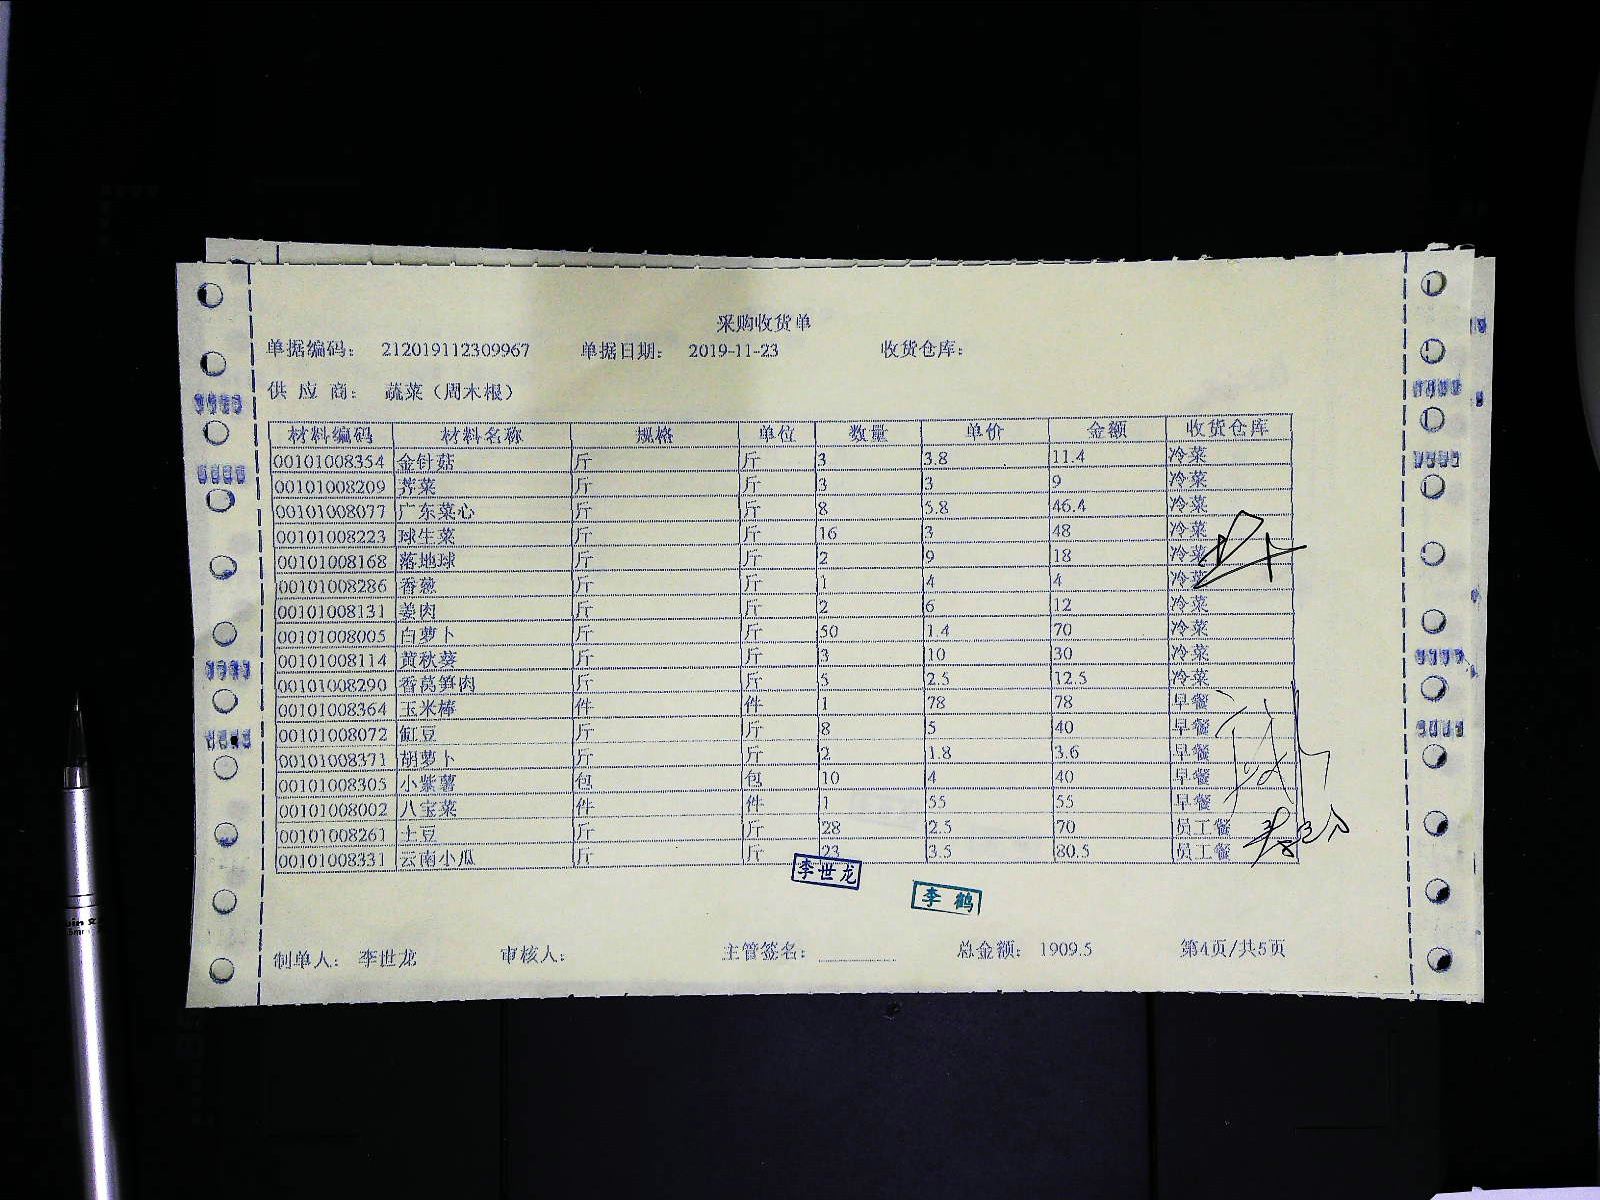 采购收货单
单据编码： 212019112309967 单据日期： 2019-11-23 收货仓库：
供 应 商： 蔬菜（周木根）
材料编码 材料名称 规格 单位 数量 单价 金额 收货仓库
00101008354 金针菇 斤 斤 3 3.8 11.4 冷菜
00101008209 荠菜 斤 斤 3 3 9 冷菜
00101008077 广东菜心 斤 斤 8 5.8 46.4 冷菜
00101008223 球生菜 斤 斤 16 3 48 冷菜
00101008168 落地球 斤 斤 2 9 18 冷菜
00101008286 香葱 斤 斤 1 4 4 冷菜
00101008131 姜肉 斤 斤 2 6 12 冷菜
00101008005 白萝卜 斤 斤 50 1.4 70 冷菜
00101008114 黄秋葵 斤 斤 3 10 30 冷菜
00101008290 香莴笋肉 斤 斤 5 2.5 12.5 冷菜
00101008364 玉米棒 件 件 1 78 78 早餐
00101008072 缸豆 斤 斤 8 5 40 早餐
00101008371 胡萝卜 斤 斤 2 1.8 3.6 早餐
00101008305 小紫薯 包 包 10 4 40 早餐
00101008002 八宝菜 件 件 1 55 55 早餐
00101008261 土豆 斤 斤 28 2.5 70 员工餐
00101008331 云南小瓜 斤 斤 23 3.5 80.5 员工餐
李世龙
李鹤
制单人： 李世龙 审核人： 主管签名： 总金额： 1909.5 第4页/共5页